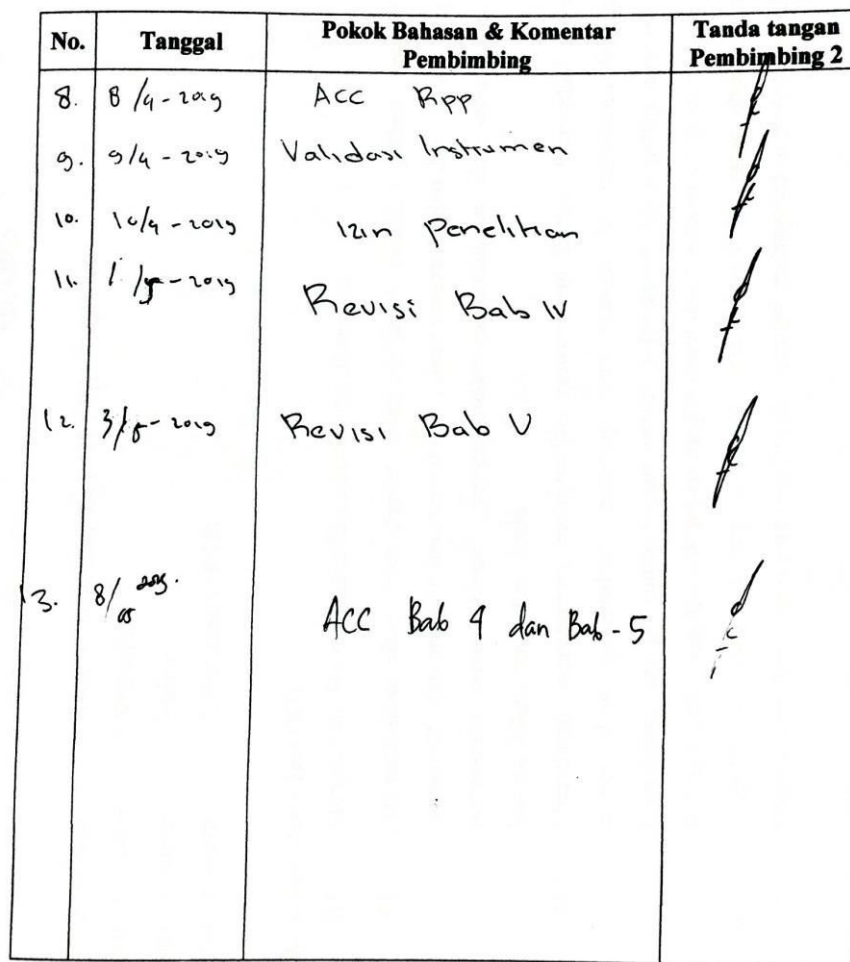 No. Tanggal Pokok Bahasan & Komentar Pembimbing Tanda tangan Pembimbing 2
8. 8/4-2019 ACC RPP
9. 9/4-2019 Validasi Instrumen
10. 10/4-2019 Izin Penelitian
11. 1/5-2019 Revisi Bab IV
12. 3/5-2019 Revisi Bab V
13. 8/05 2019. ACC Bab 4 dan Bab-5